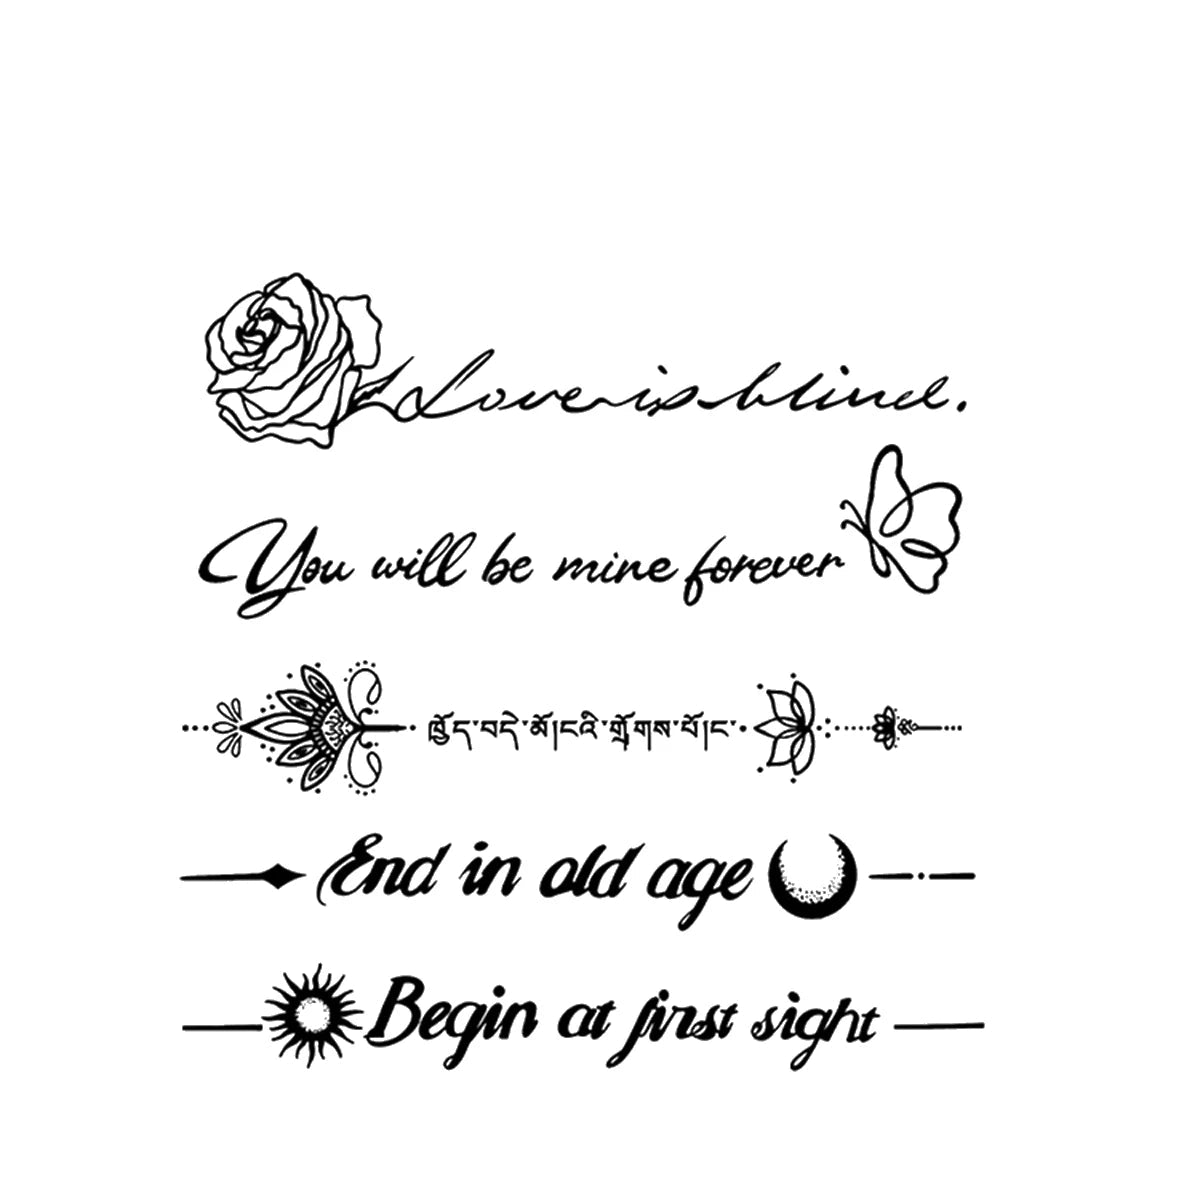 Love is blind.
You will be mine forever
ཁྱོད་བདེ་མོ།ངའི་གྲོགས་པོ།ང་
End in old age
Begin at first sight